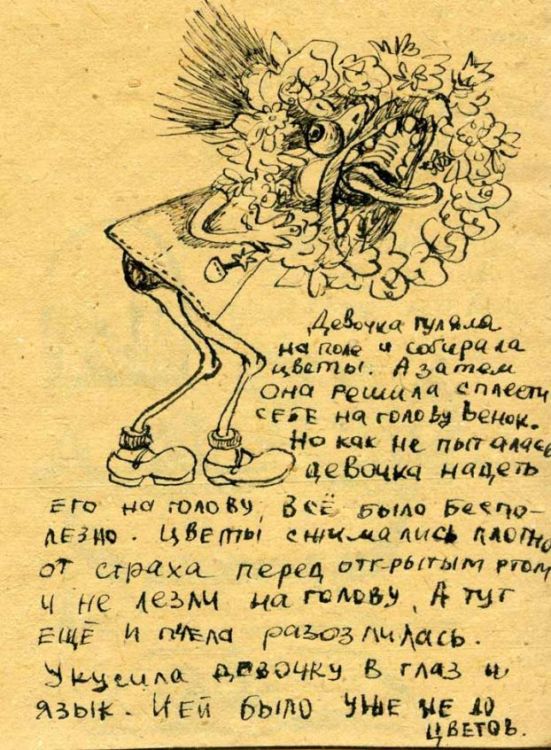 Девочка гуляла
на поле и собирала
цветы. А затем
она решила сплести
СЕБЕ на голову Венок.
Но как не пыталась
девочка надеть
Его на голову, Всё было Беспо-
лезно. Цветы сжимались плотно
от страха перед открытым ртом
и не лезли на голову. А тут
ЕЩЁ и пчела разозлилась.
Укусила девочку в глаз и
язык. И ей было уже не до
цветов.